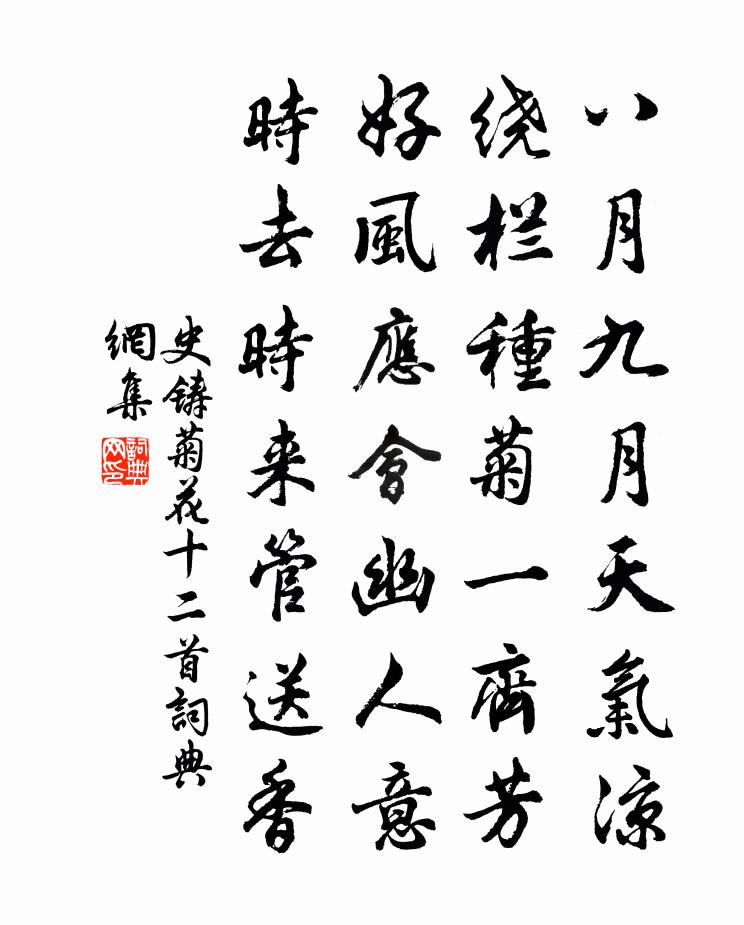 八月九月天氣涼
绕栏種菊一齊芳
好風應會幽人意
時去時来管送香
史鋳菊花十二首詞典
網集
詞典
网印